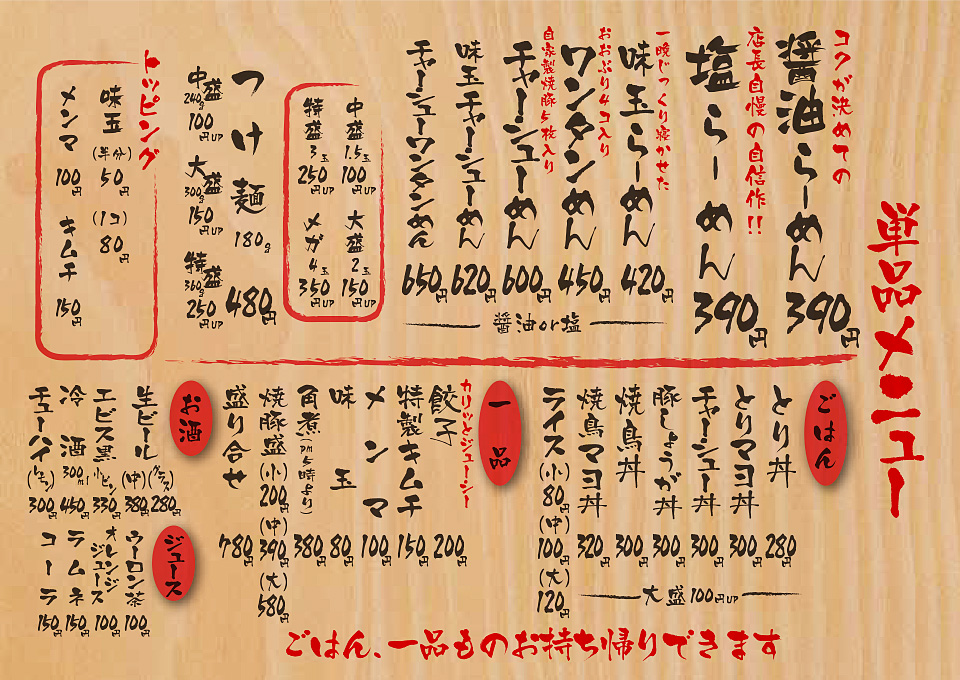 単品メニュー
コクが決めての
醤油らーめん 390円
店長自慢の自信作!!
塩らーめん 390円
一晩じっくり寝かせた
味玉らーめん 420円
おおぶり4コ入り
ワンタンめん 450円
自家製焼豚5枚入り
チャーシューめん 600円
味玉チャーシューめん 620円
チャーシューワンタンめん 650円
醤油or塩
中盛1.5玉 100円UP
大盛2玉 150円UP
特盛3玉 250円UP
メガ4玉 350円UP
つけ麺 180g 480円
中盛240g 100円UP
大盛300g 150円UP
特盛360g 250円UP
トッピング
味玉 (半分) 50円 (1コ) 80円
メンマ 100円
キムチ 150円
ごはん
とり丼 280円
とりマヨ丼 300円
チャーシュー丼 300円
豚しょうが丼 300円
焼鳥丼 300円
焼鳥マヨ丼 320円
大盛100円UP
ライス (小) 80円 (中) 100円 (大) 120円
一品
カリッとジューシー
餃子 200円
特製キムチ 150円
メンマ 100円
味玉 80円
角煮(pm5時より) 380円
焼豚盛 (小) 200円 (中) 390円 (大) 580円
盛り合せ 780円
お酒
生ビール (グラス) 280円 (中) 380円
エビス黒 小ビン 330円
冷酒 300ml 450円
チューハイ (レモン) 300円
ジュース
ウーロン茶 100円
オレンジジュース 100円
ラムネ 150円
コーラ 150円
ごはん、一品ものお持ち帰りできます